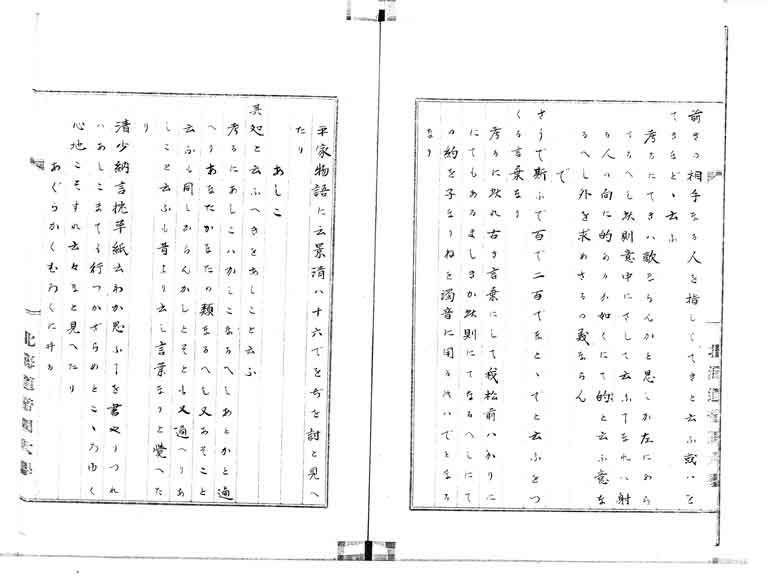 前きの相手なる人を指しててきと云ふ或ハと
てきなど、云ふ
考るにてきハ敵ならんかと思しか左にあら
てるへし此則意中にさして云ふてなれハ射
る人の向に的あるか如くにて的と云ふ意な
るへし外を求めさるの義ならん
で
さうで斯ふで百で二百でなと、でと云ふをつ
くる言葉なり
考るに此れ古き言葉にして我松前ハかりに
にてもあるましきか此則にてなるへしにて
の約を子なりねを濁音に用る故ハでとなる
なり
平家物語に云景清ハ十六でをぢを討と見へ
たり
あしこ
其処と云ふへきをあしこと云ふ
考るにあしこハかしこなるへしあとかと通
へりあなたかなたの類なるへし又あそこと
云ふも同しからんかしとそと又通へりあ
しこと云ふも昔より云し言葉なりと覚へた
り
清少納言枕草紙云わか思ふ人を書やりつれ
ハあしこまてる行つかざらめとこゝろゆく
心地こそすれ云々なと見へたり
あぐらかくむろくに井る
北海道帝国大学